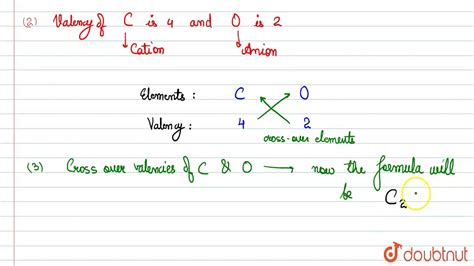 (2) Valency of C is 4 and O is 2
Cation Anion
Elements : C O
Valency : 4 2
cross-over elements
(3) Cross over valencies of C & O → now the formula will
be C2
doubtnut